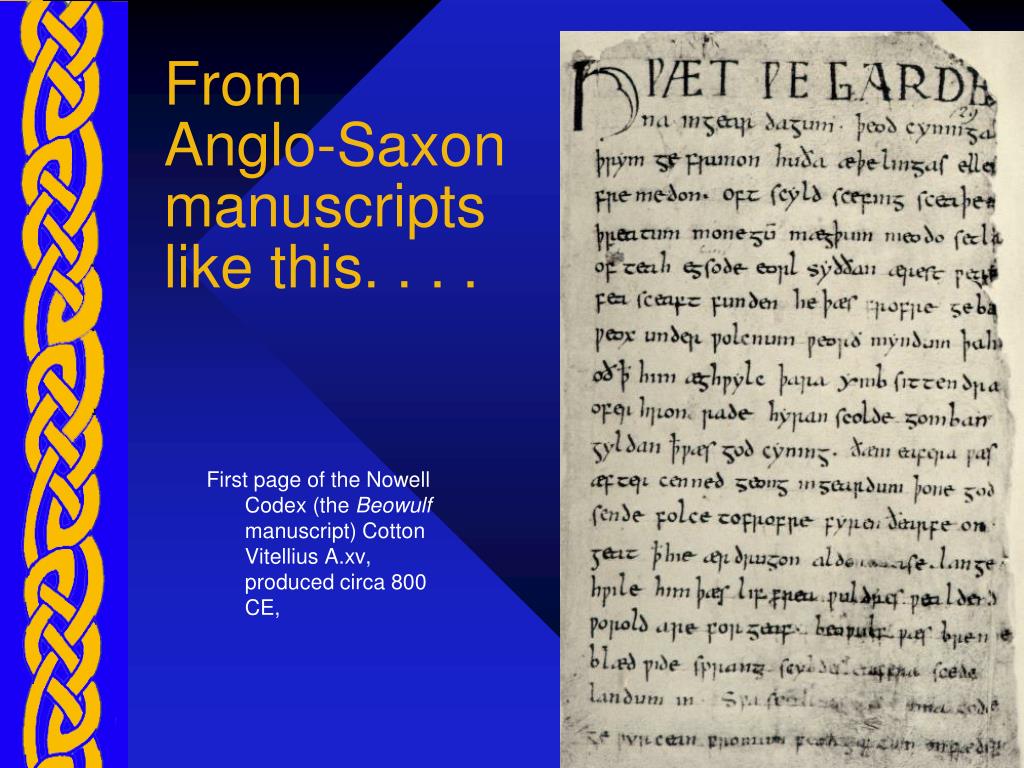 From
Anglo-Saxon
manuscripts
like this. . . .
First page of the Nowell
Codex (the Beowulf
manuscript) Cotton
Vitellius A.xv,
produced circa 800
CE,
HǷÆT ǷE GARDE
129
na ingear dagum. þeod cyninga
þrym ge frunon huða æþelingas elle
fremedon. oft scyld scefing sceaþe
þreatum monegū mægþum meodo setla
of teah egsode eorl syððan ærest ƿear
fea sceaft funden he þæs frofre geba
ƿeox under ƿolcnum ƿeorð myndum þah
oð ꝥ him æghƿylc þara ymb sittendra
ofer hron rade hyran scolde gomban
gyldan ꝥ ƿæs god cyning. ðæm eafera ƿæs
æfter cenned geong in geardum þone god
sende folce tofrofre fyren ðearfe on
geat ꝥ hie ær drugon lange
hƿile him þæs lif frea ƿuldres ƿealdend
ƿorold are for geaf. beoƿulf ƿæs breme
blæd ƿide sprang scyldes eafera scede
landum in. gode
ge ƿyrcean fromum